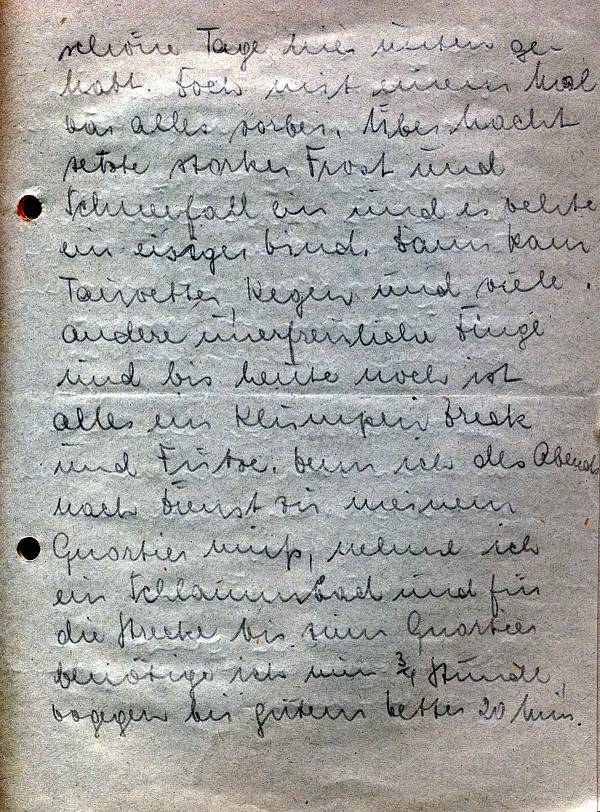 schöne Tage hier unten ge-
habt. Doch mit einem Mal
war alles vorbei. Über Nacht
setzte starker Frost und
Schneefall ein und es wehte
ein eisiger Wind. Dann kam
Tauwetter, Regen und viele
andere unerfreuliche Dinge
und bis heute noch ist
alles ein Klumpen Dreck
und Pfütze. Wenn ich des Abends
nach Dienst zu meinem
Quartier muß, nehme ich
ein Schlammbad und für
die Strecke bis zum Quartier
benötige ich nun ¾ Stunde,
wogegen bei gutem Wetter 20 Min.